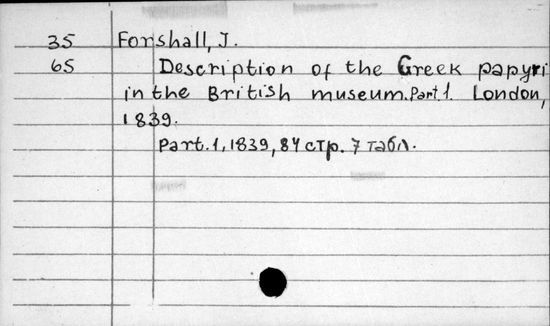 35 Forshall, J.
65 Description of the Greek papyri
in the British museum. Part 1. London,
1839.
Part. 1, 1839, 84 стр. 7 табл.